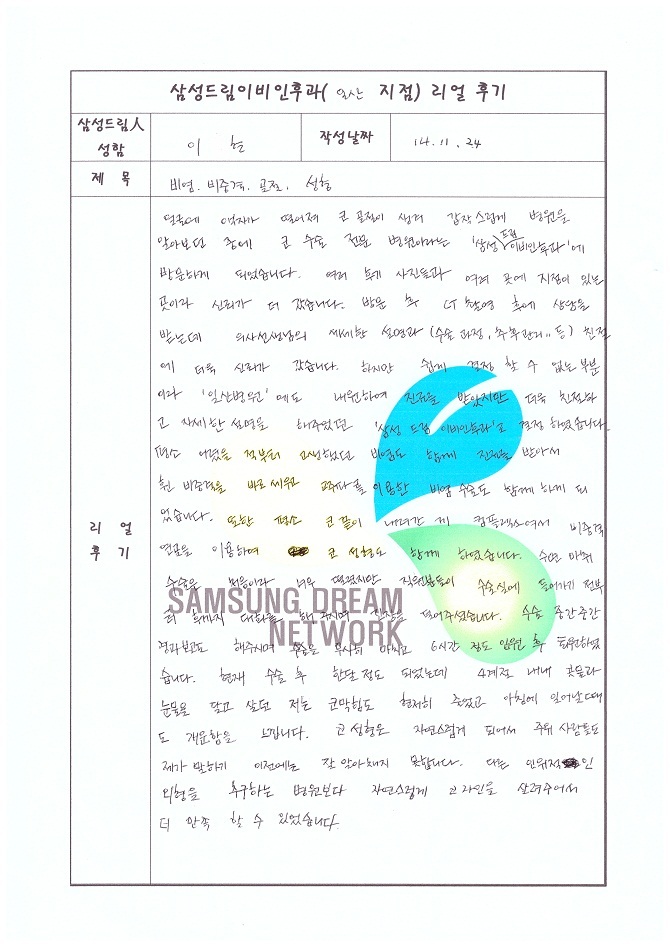 삼성드림이비인후과( 일산 지점) 리얼 후기
삼성드림人 성함
이 현
작성날짜
14. 11. 24
제 목
비염. 비중격. 골절. 성형
리 얼 후 기
얼굴에 액자가 떨어져 코 골절이 생겨 갑작스럽게 병원을
알아보던 중에 코 수술 전문 병원이라는 '삼성드림이비인후과'에
방문하게 되었습니다. 여러 후기 사진들과 여러 곳에 지점이 있는
곳이라 신뢰가 더 갔습니다. 방문 후 CT 촬영 후에 상담을
받는데 의사선생님의 세세한 설명과 (수술 과정, 추후관리 등) 친절
에 더욱 신뢰가 갔습니다. 하지만 쉽게 결정 할 수 없는 부분
이라 '일산병원'에도 내원하여 진료를 받았지만 더욱 친절하
고 자세한 설명을 해주었던 '삼성 드림 이비인후과'로 결정 하였습니다.
평소 어렸을 적부터 고생했던 비염도 함께 진료를 받아서
휜 비중격을 바로 세워 고주파를 이용한 비염 수술도 함께 하게 되
었습니다. 또한 평소 코끝이 내려간 게 컴플렉스여서 비중격
연골을 이용하여 코 성형도 함께 하였습니다. 수면 마취
수술은 처음이라 너무 떨렸지만 직원분들이 수술실에 들어가기 전부
터 대화를 해 주시며 긴장을 덜어주셨습니다. 수술 중간중간
경과보고도 해주시며 수술을 무사히 마치고 6시간 정도 입원 후 퇴원하였
습니다. 현재 수술 후 한달 정도 되었는데 4계절 내내 콧물과
눈물을 달고 살던 저는 코막힘도 현저히 줄었고 아침에 일어났을때
도 개운함을 느낍니다. 코 성형은 자연스럽게 되어서 주위 사람들도
제가 말하기 이전에는 잘 알아채지 못합니다. 다른 인위적인
외형을 추구하는 병원보다 자연스럽게 코 라인을 살려주어서
더 만족 할 수 있었습니다.
SAMSUNG DREAM
NETWORK